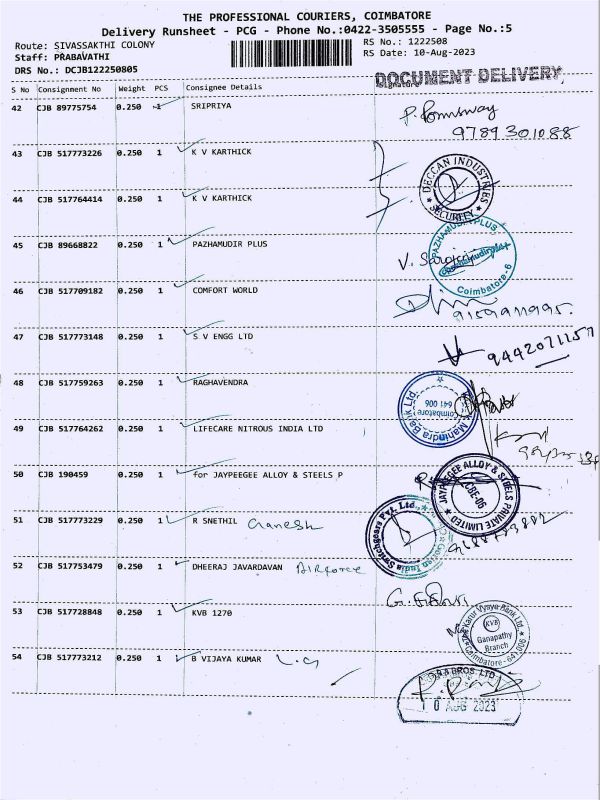 THE PROFESSIONAL COURIERS, COIMBATORE
Delivery Runsheet - PCG - Phone No.:0422-3505555 - Page No.:5
Route: SIVASSAKTHI COLONY
RS No.: 1222508
Staff: PRABAVATHI
RS Date: 10-Aug-2023
DRS No.: DCJB122250805
DOCUMENT DELIVERY
S No Consignment No Weight PCS Consignee Details Signature
42 CJB 89775754 0.250 1 SRIPRIYA
9789301088
43 CJB 517773226 0.250 1 K V KARTHICK
DECCAN INDUSTRIES
SECURITY
44 CJB 517764414 0.250 1 K V KARTHICK
45 CJB 89668822 0.250 1 PAZHAMUDIR PLUS
PAZHAMUDIR PLUS
Coimbatore-6
46 CJB 517709182 0.250 1 COMFORT WORLD
47 CJB 517773148 0.250 1 S V ENGG LTD
48 CJB 517759263 0.250 1 RAGHAVENDRA
Mahindra Bank Ltd.
Coimbatore
641 006
49 CJB 517764262 0.250 1 LIFECARE NITROUS INDIA LTD
50 CJB 190459 0.250 1 for JAYPEEGEE ALLOY & STEELS P
JAYPEEGEE ALLOY & STEELS PRIVATE LIMITED
CBE-06
51 CJB 517773229 0.250 1 R SNETHIL Ganesh
India Switchgears Pvt. Ltd.,
52 CJB 517753479 0.250 1 DHEERAJ JAVARDAVAN Airforce
53 CJB 517728848 0.250 1 KVB 1270
Karur Vysya Bank Ltd.
KVB
Ganapathy
Branch
Coimbatore-641 006
54 CJB 517773212 0.250 1 B VIJAYA KUMAR
BROS. LTD
10 AUG 2023